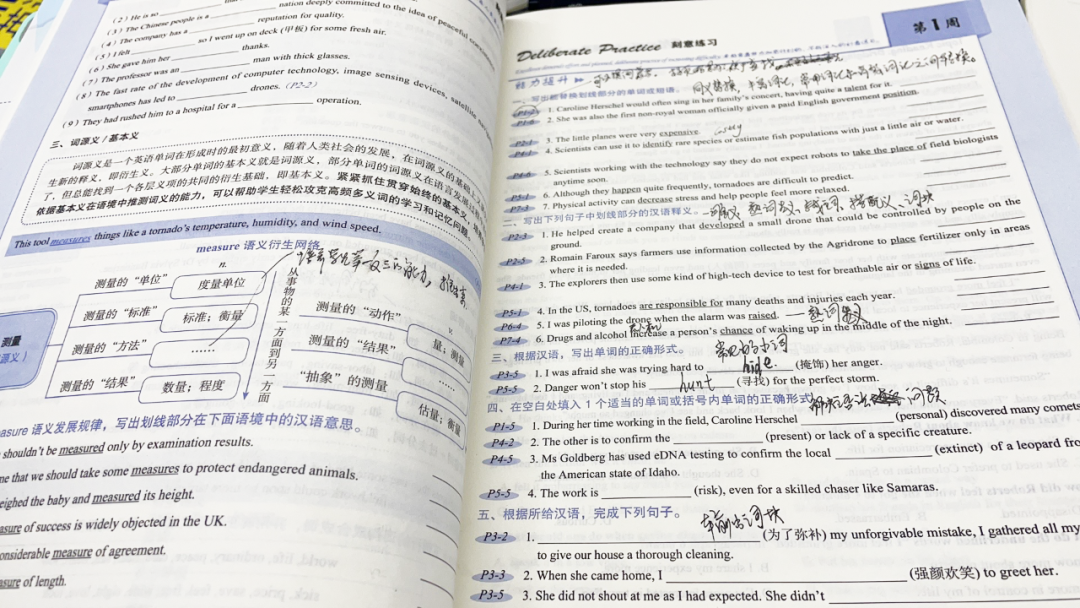 (2) He is so
nation deeply committed to the idea of peaceful
(3) The Chinese people is a
reputation for quality.
(4) The company has a
(5) I felt so I went up on deck (甲板) for some fresh air.
(6) She gave him her thanks.
(7) The professor was an man with thick glasses.
(8) The fast rate of the development of computer technology, image sensing devices,
smartphones has led to drones. (P2-2)
(9) They had rushed him to a hospital for a operation.
三、词源义 / 基本义
词源义是一个英语单词在形成时的最初意义,随着人类社会的发展,在词源义的基础上
生新的释义,即衍生义。大部分单词的基本义就是词源义,部分单词的词源义在语言发展
了,但总能找到一个各层义项的共同的衍生基础,即基本义。紧紧抓住贯穿始终的基本义,
依据基本义在语境中推测词义的能力,可以帮助学生轻松攻克高频多义词的学习和记忆问题。
This tool measures things like a tornado's temperature, humidity, and wind speed.
measure 语义衍生网络
n.
测量的“单位” 度量单位
测量的“标准” 标准;衡量
测量的“方法” ……
测量的“结果” 数量;程度
测量
源义)
从事物的某一方面到另一方面
v.
测量的“动作” 量;测量
测量的“结果” ……
“抽象”的测量 估量;衡量
easure 语义发展规律,写出划线部分在下面语境中的汉语意思。
shouldn't be measured only by examination results.
me that we should take some measures to protect endangered animals.
eighed the baby and measured its height.
asure of success is widely objected in the UK.
onsiderable measure of agreement.
asure of length.
第1周
Deliberate Practice 刻意练习
能力提升
一、写出能替换划线部分的单词或短语。
1. Caroline Herschel would often sing in her family's concert, having quite a talent for it.
2. She was also the first non-royal woman officially given a paid English government position.
3. The little planes were very expensive.
4. Scientists can use it to identify rare species or estimate fish populations with just a little air or water.
P4-6 5. Scientists working with the technology say they do not expect robots to take the place of field biologists
anytime soon.
P5-1 6. Although they happen quite frequently, tornadoes are difficult to predict.
P7-3 7. Physical activity can decrease stress and help people feel more relaxed.
二、写出下列句子中划线部分的汉语释义。
P2-3 1. He helped create a company that developed a small drone that could be controlled by people on the
ground.
P2-5 2. Romain Faroux says farmers use information collected by the Agridrone to place fertilizer only in areas
where it is needed.
P4-1 3. The explorers then use some kind of high-tech device to test for breathable air or signs of life.
P5-1 4. In the US, tornadoes are responsible for many deaths and injuries each year.
P6-4 5. I was piloting the drone when the alarm was raised.
P7-4 6. Drugs and alcohol increase a person's chance of waking up in the middle of the night.
三、根据汉语,写出单词的正确形式。
P3-5 1. I was afraid she was trying to hide (掩饰) her anger.
P5-5 2. Danger won't stop his hunt (寻找) for the perfect storm.
四、在空白处填入1个适当的单词或括号内单词的正确形式。
P1-5 1. During her time working in the field, Caroline Herschel (personal) discovered many comets
P4-2 2. The other is to confirm the (present) or lack of a specific creature.
P4-5 3. Ms Goldberg has used eDNA testing to confirm the local (extinct) of a leopard fro
the American state of Idaho.
P5-5 4. The work is (risk), even for a skilled chaser like Samaras.
五、根据所给汉语,完成下列句子。
P3-2 1. (为了弥补) my unforgivable mistake, I gathered all my
to give our house a thorough cleaning.
P3-3 2. When she came home, I (强颜欢笑) to greet her.
P3-5 3. She did not shout at me as I had expected. She didn't